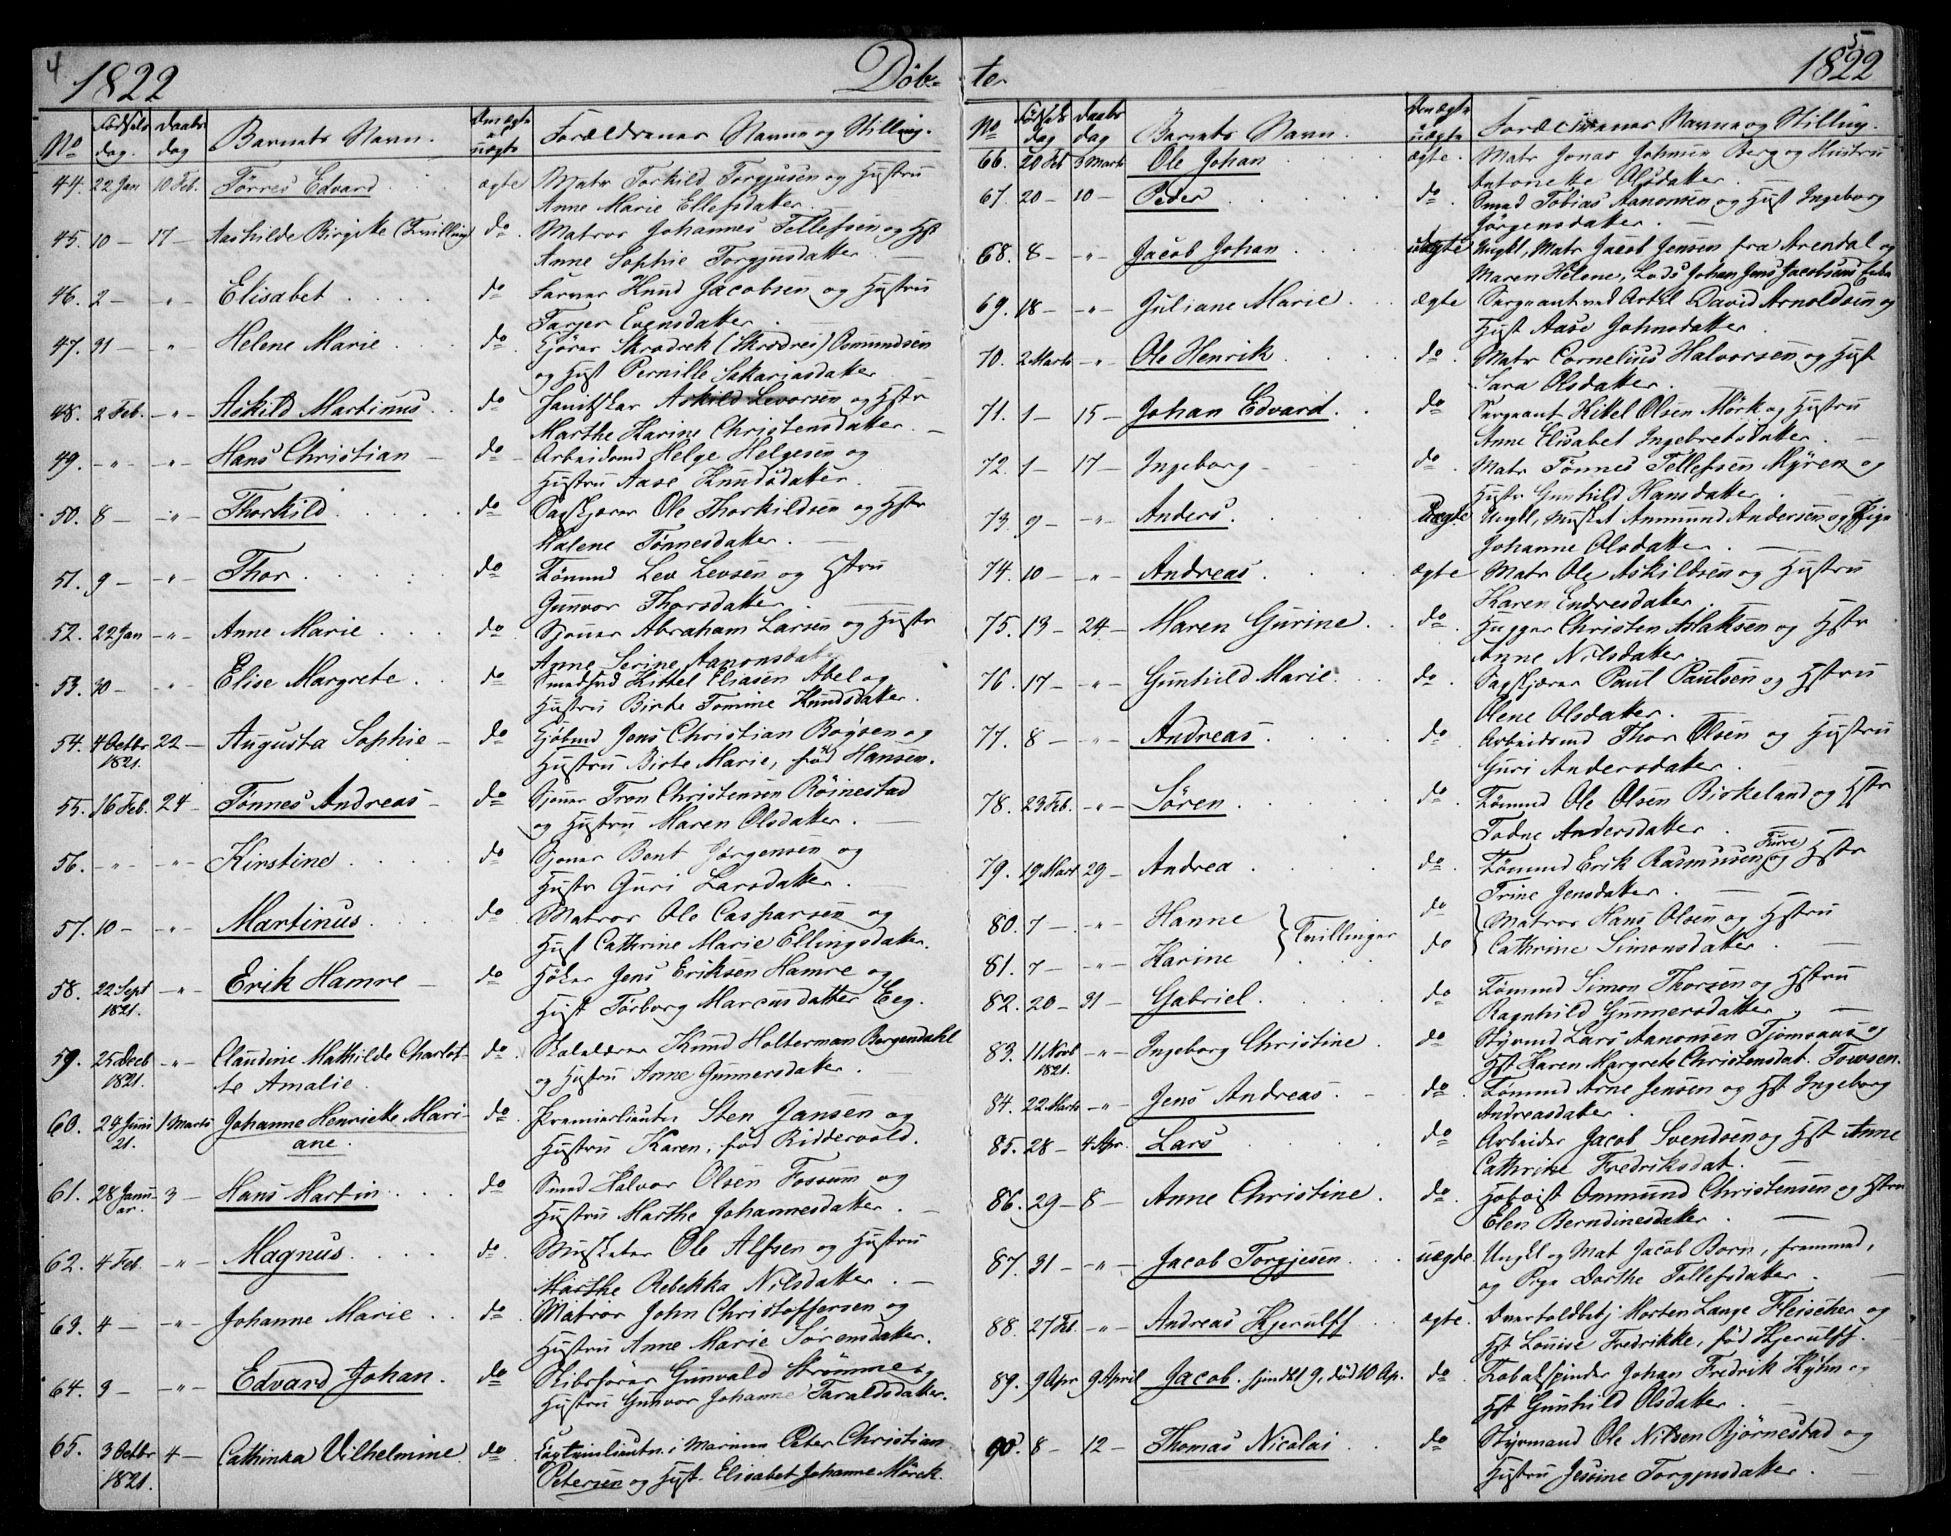 4
1822 Døb-
No Fødsels dag. Daabs dag Barnets Navn. Om ægte el. uægte Forældrenes Navne og Stilling.
44. 22 Jan 10 Feb. Tørres Edvard ægte Matr Torkild Torgjusen og Hustru
Anne Marie Ellefsdatter. —
45. 10 — 17 — Aashilde Birgitte (Tvilling) do. Matros Johannes Tellefsen og Hst
Anne Sophie Torgjusdatter. —
46. 2 — " - Elisabet do Farver Knud Jacobsen og Hustru
Tarjer Evensdatter.
47. 31 — " Helene Marie do. Skrædrek (Skrædrei) Osmundsen
og Hust Pernille Sakariasdatter
48. 2 Feb. - " - Askild Martinus. do Askild Levorsen og Hstr
Marthe Karine Christensdatter. —
49. - " - - " - Hans Christian — do. Arbeidsmd Helge Helgesen og
Hustru Aase Knudsdatter.
50. 8 — - " - Thorkild do Sagskjærer Ole Thorkildsen og Hstr
Malene Tønnesdatter. —
51. 9 — - " - Thor do Tømmd Lev Levsen og Hstru
Gunvor Thorsdatter. —
52. 22 Jan - " - Anne Marie do. Sjouer Abraham Larsen og Hustr
Anne Serine Aanonsdatter
53. 30 — " - Elise Margrete. do Kittel Eliasen Abel og
Hustru Birte Tomine Knudsdatter.
54. 4 Octbr 1821. 22 — Augusta Sophie — do Kjøbmd Jens Christian Bogsen og
Hustru Birte Marie, fød Hansen.
55. 16 Feb. 24 — Tønnes Andreas — do. Sjouer Tron Christensen Røinestad
og Hustru Maren Olsdatter. —
56. - " - - " - Kirstine do Sjouer Bent Jørgensen og
Hustr Guri Larsdatter. —
57. 10 — - " - Martinus. do Matros Ole Caspersen og
Hust Cathrine Marie Ellingsdatter.
58. 22 Sept 1821. - " - Erik Hamre — do Høker Jens Eriksen Hamre og
Hust Tørborg Marcusdatter Eeg.
59. 25 Decb 1821. - " - Claudine Mathilde Charlot- do. Skolelærer Knud Holterman Borgendahl
te Amalie. og Hustru Anne Gunnersdatter. —
60. 24 Juni 21. 1 Marts Johanne Henriette Mari- do. Premierlieutn. Sten Jansen og
ane. Hustru Karen, fød Riddervold.
61. 28 Janu ar. 3 — Hans Martin do Smed Halvor Olsen Fossum og
Hustru Marthe Johannesdatter. —
62. 4 Feb. - " - Magnus. do. Musketer Ole Alfsen og Hustru
Marthe Rebekka Nilsdatter. —
63. 4 — - " - Johanne Marie do. Matros John Christoffersen og
Hustru Anne Marie Sørensdatter.
64. 3 — - " - Edvard Johan. do Skibsfører Gunvald Strømme og
Hustru Gunvor Johanne Taraldsdatter.
65. 3 Octbr 1821. 4 — Cathinka Vilhelmine do. i Marinen Peter Christian
Petersen og Hust. Elisabet Johanne Mørck.
5
te. 1822
No Fødsels dag Daabs dag Barnets Navn. Om ægte uægte Forældrenes Navne og Stilling.
66. 20 Feb 3 Marts Ole Johan ægte. Matr Jonas Johnsen Berg og Hustru
Antonette Olsdatter. —
67. 20 — 10 — Peder do Smed Tobias Aanonsen og Hust Ingeborg
Jørgensdatter. —
68. 8 — - " - Jacob Johan uægte Ungkl, Matr Jacob Jensen fra Arendal og
Maren Helene, Lods Johan Jens Jacobsens
69. 18 — - " - Juliane Marie ægte Sergeant ved Artil David Arnoldsen og
Hust Aase Johnsdatter.
70. 2 Marts - " - Ole Henrik do. Matr Cornelius Halvorsen og Hust
Sara Olsdatter.
71. 1 — 15 — Johan Edvard. do Sergeant Kittel Olsen Mørk og Hustru
Anne Elisabet Ingebretsdatter. —
72. 1 — 17 — Ingeborg do. Matr Tønnes Tellefsen Myren og
Hustr Gunhild Hansdatter
73. 9 — - " - Anders. Uægte Ungkl, Musket Anmund Andersen og Pige
Johanne Olsdatter. —
74. 10 — - " - Andreas ægte Matr Ole Askildsen og Hustru
Karen Endresdatter.
75. 13 — 24 — Maren Gurine. do. Hugger Christen Aslaksen og Hstr
Anne Nilsdatter.
76. 17 — - " - Gunhild Marie. do. Sagskjærer Paul Paulsen og Hstru
Olene Olsdatter.
77. 8 — - " - Andreas do. Arbeidsmd Thor Olsen og Hustru
Guri Andersdatter. —
78. 23 Feb. - " - Søren do. Tømmd Ole Olsen Birkeland og Hstr
Todne Andersdatter.
79. 19 Mart 29 — Andrea do. Tømmd Erik Rasmussen Furre og Hstr
Trine Jensdatter. —
80. 7 — - " - Hanne } Tvillinger do { Matros Hans Olsen og Hstru
81. 7 — - " - Karine do Cathrine Simonsdatter. —
82. 20 — 31 — Gabriel. do. Tømmd Simon Thorsen og Hstru
Ragnhild Gunnersdatter. —
83. 11 Novb 1821. - " - Ingeborg Christine. do. Styrmd Lars Aanonsen Tjomsaas og
Hst Karen Margrete Christensdat. Towsen.
84. 22 Marts - " - Jens Andreas. do. Tømmd Arne Jensen og Hst Ingeborg
Andreasdatter.
85. 28 — 4 Apr. Lars do. Arbeider Jacob Svendsen og Hst Anne
Cathrine Fredriksdat. —
86. 29 — 8 — Anne Christine. do. Hoboist Ommund Christensen og Hstru
Elen Berndinesdatter. —
87. 31 — - " - Jacob Torgjesen uægte. Ungkl og Mat Jacob Born, fremmed,
og Pige Dorthe Tollefsdatter.
88. 27 Feb. - " - Andreas Kjerulff ægte. Overtoldbetj Morten Lange Fleischer og
Hst Louise Fredrikke, fød Kjerulff. —
89. 9 Apr 9 April Jacob. hjemdøbt 9, død 10 Ap. do. Tobakspinder Johan Fredrik Kyhn og
Hst Gunhild Olsdatter. —
90. 8 — 12 — Thomas Nicolai do. Styrmand Ole Nilsen Bjørnestad og
Hustru Jessine Torgjusdatter. —